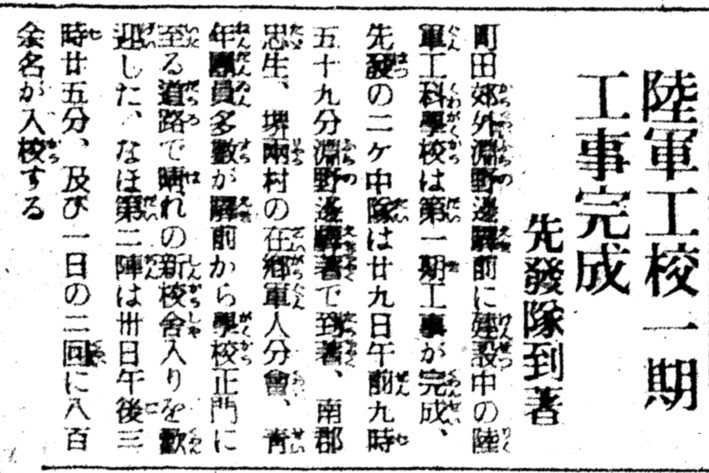 陸軍工校一期
工事完成
先發隊到著
町田郊外淵野邊驛前に建設中の陸
軍工科學校は第一期工事が完成、
先發の二ケ中隊は廿九日午前九時
五十九分淵野邊驛著で到著、南郡
忠生、堺兩村の在鄕軍人分會、靑
年團員多數が驛前から學校正門に
至る道路で晴れの新校舍入りを歡
迎した、なほ第二陣は卅日午後三
時廿五分、及び一日の二回に八百
余名が入校する